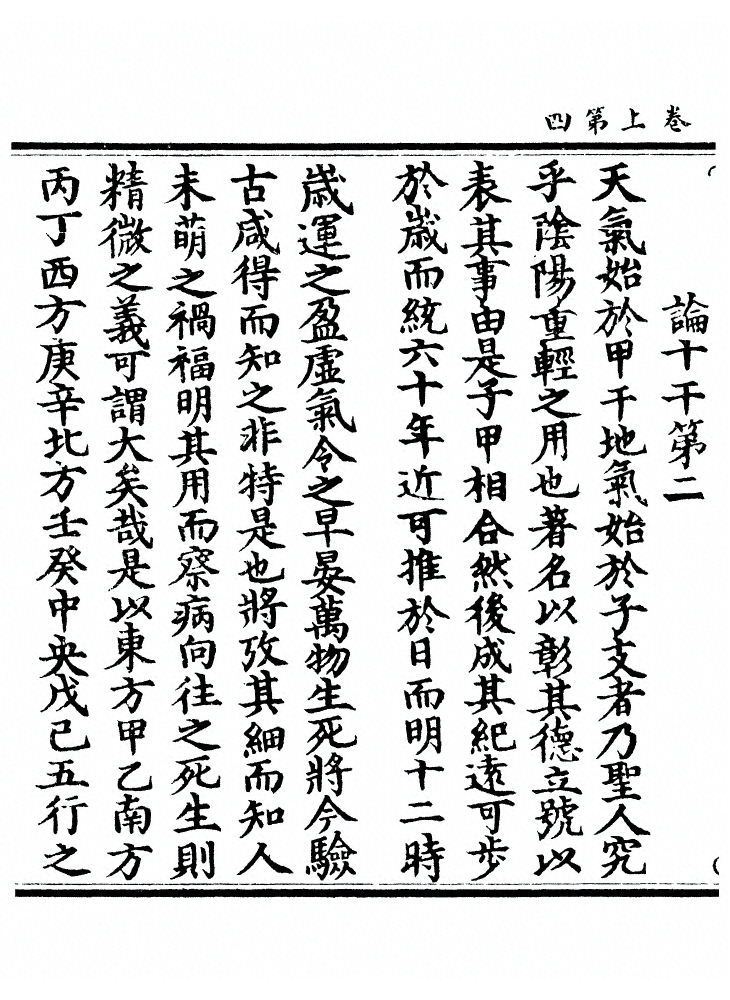 卷上第四
論十干第二
天氣始於甲干地氣始於子支者乃聖人究
乎陰陽重輕之用也著名以彰其德立號以
表其事由是子甲相合然後成其紀遠可步
於歲而統六十年近可推於日而明十二時
歲運之盈虛氣令之早晏萬物生死將今驗
古咸得而知之非特是也將攷其細而知人
未萌之禍福明其用而察病向往之死生則
精微之義可謂大矣哉是以東方甲乙南方
丙丁西方庚辛北方壬癸中央戊己五行之